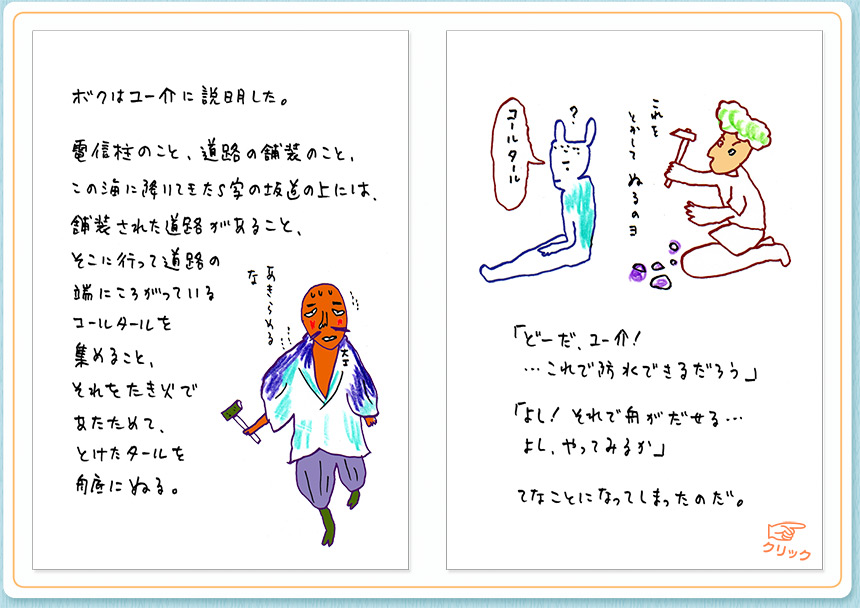 ボクはユー介に説明した。
電信柱のこと、道路の舗装のこと、
この海に降りてきたS字の坂道の上には、
舗装された道路があること、
そこに行って道路の
端にころがっている
コールタールを
集めること、
それをたき火で
あたためて、
とけたタールを
舟底にぬる。
あきらめる
な
大工
コールタール
?
これを
とかして ぬるのヨ
「どーだ、ユー介!
…これで防水できるだろう」
「よし! それで舟がだせる…
よし、やってみるか」
てなことになってしまったのだ。
クリック